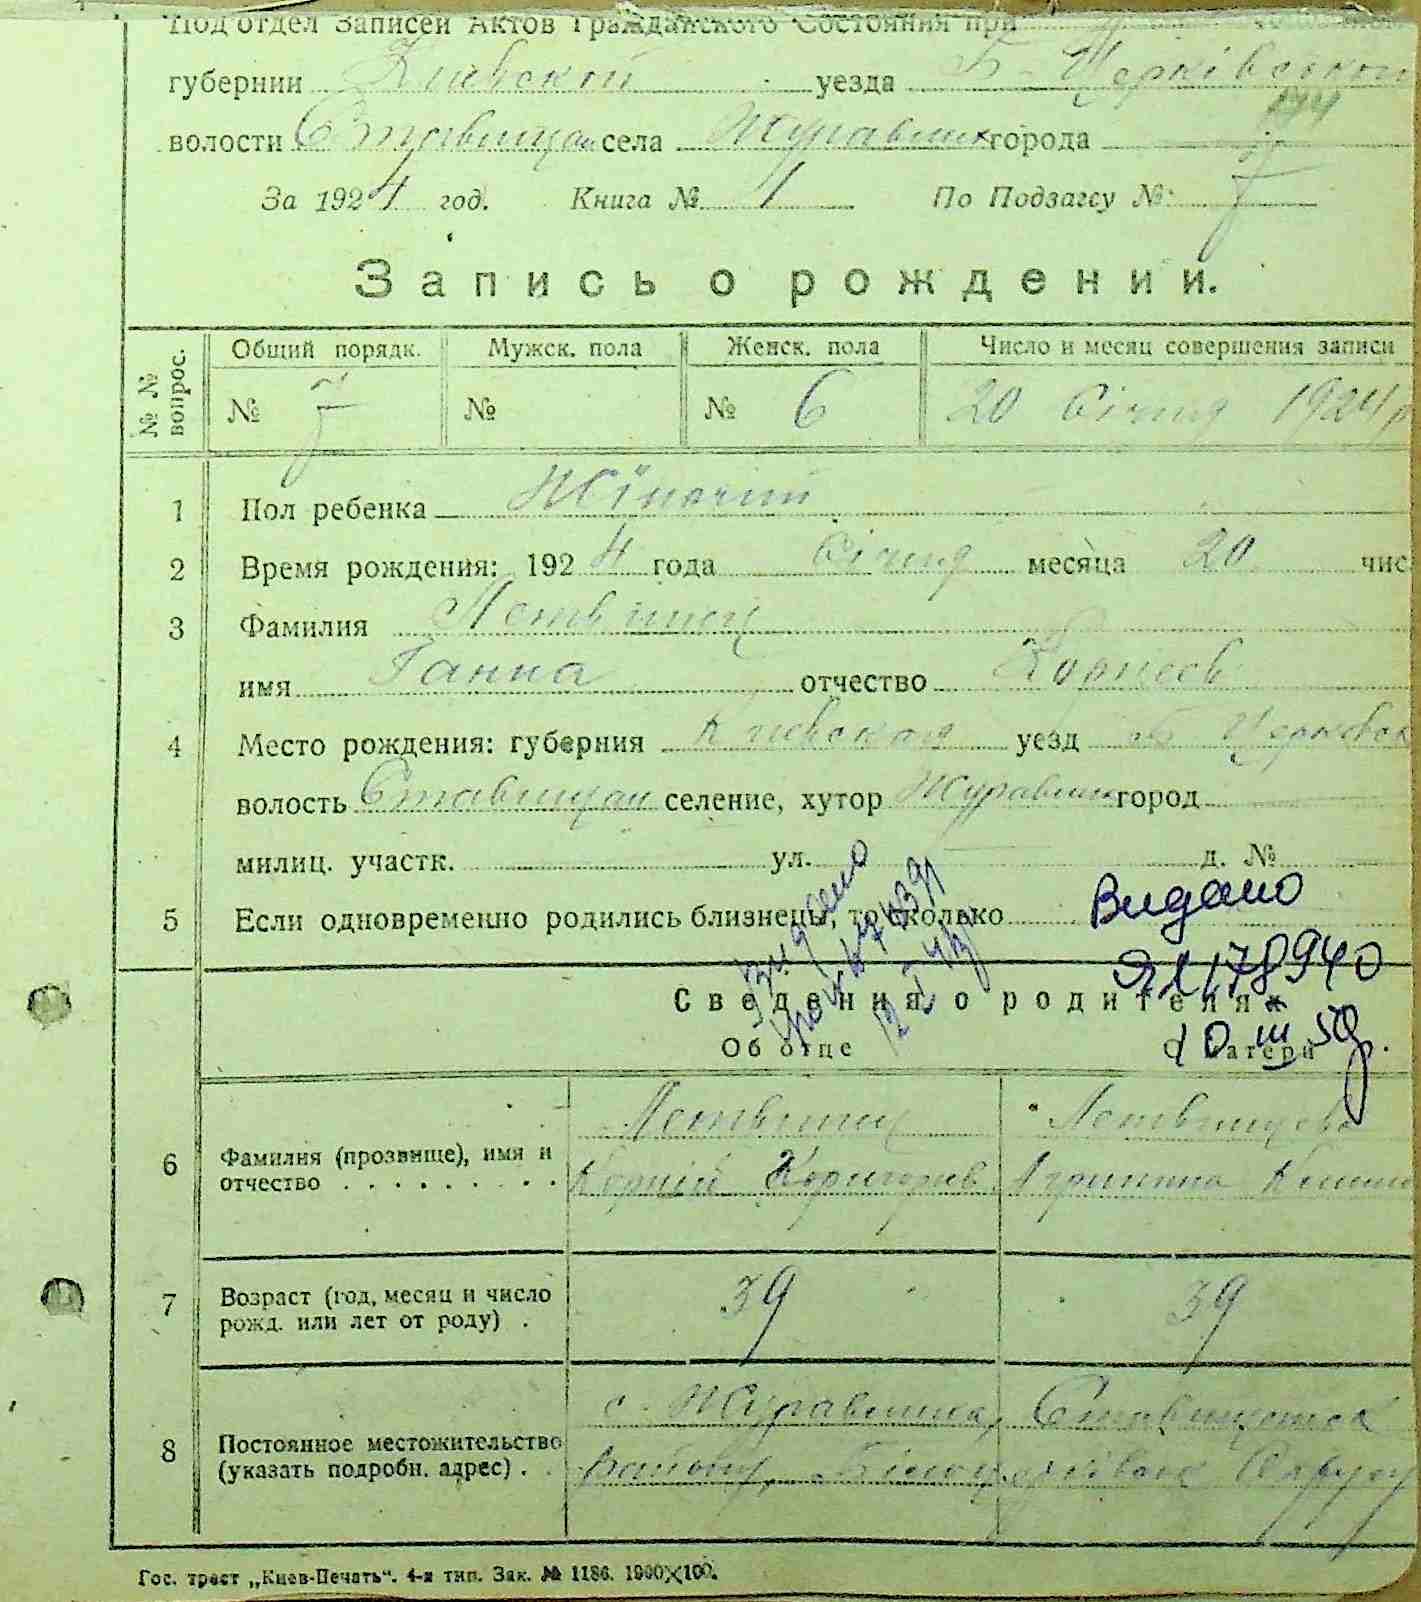 Под отдел Записей Актов Гражданского Состояния при
губернии Киевской уезда Б-Церківського
волости Ставищан села Журавлих города
144
За 1924 год. Книга № 1 По Подзагсу № 7
Запись о рождении.
№ № вопрос. Общий порядк. Мужск. пола Женск. пола Число и месяц совершения записи
№ 7 № № 6 20 Січня 1924 р
1 Пол ребенка Жіночий
2 Время рождения: 1924 года Січня месяца 20 чис
3 Фамилия Летвинец
имя Ганна отчество Корнеев
4 Место рождения: губерния Киевская уезд Б Церковск
волость Ставищан селение, хутор Журавлих город
милиц. участк. ул. д. №
5 Если одновременно родились близнецы, то сколько
Видано
178940
10 III 59
Сведения о родителях
Об отце О матери
6 Фамилия (прозвище), имя и отчество Летвинец Корній Летвинцева
7 Возраст (год, месяц и число рожд. или лет от роду) . 39 39
8 Постоянное местожительство (указать подробн. адрес) . . с. Журавлиха, Ставищенск
району, Білоцерківськ Округу
Гос. трест „Киев-Печать“. 4-я тип. Зак. № 1186. 1900×100.